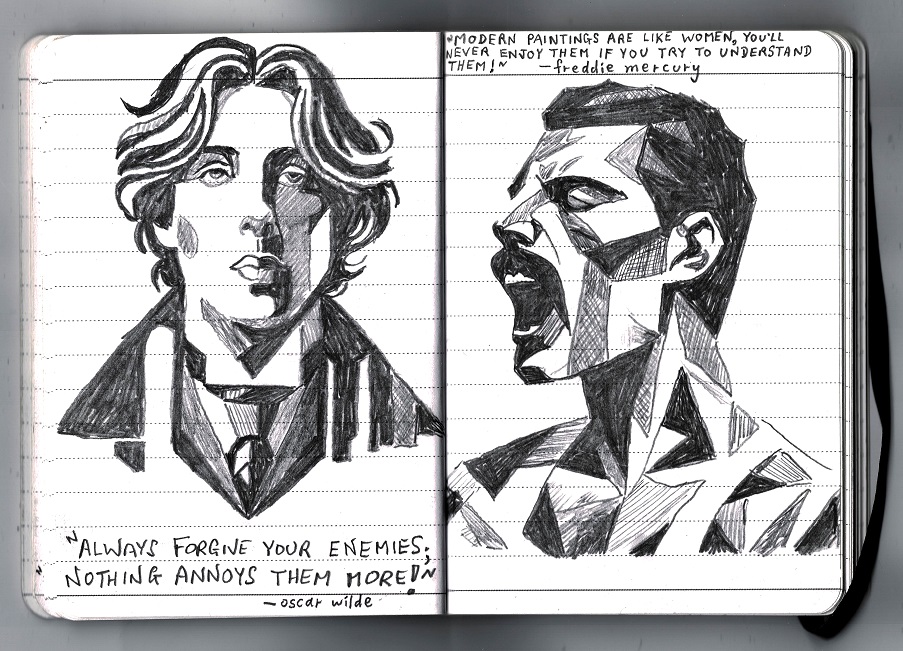 "ALWAYS FORGIVE YOUR ENEMIES;
NOTHING ANNOYS THEM MORE!"
—oscar wilde
"MODERN PAINTINGS ARE LIKE WOMEN, YOU'LL
NEVER ENJOY THEM IF YOU TRY TO UNDERSTAND
THEM!" —freddie mercury